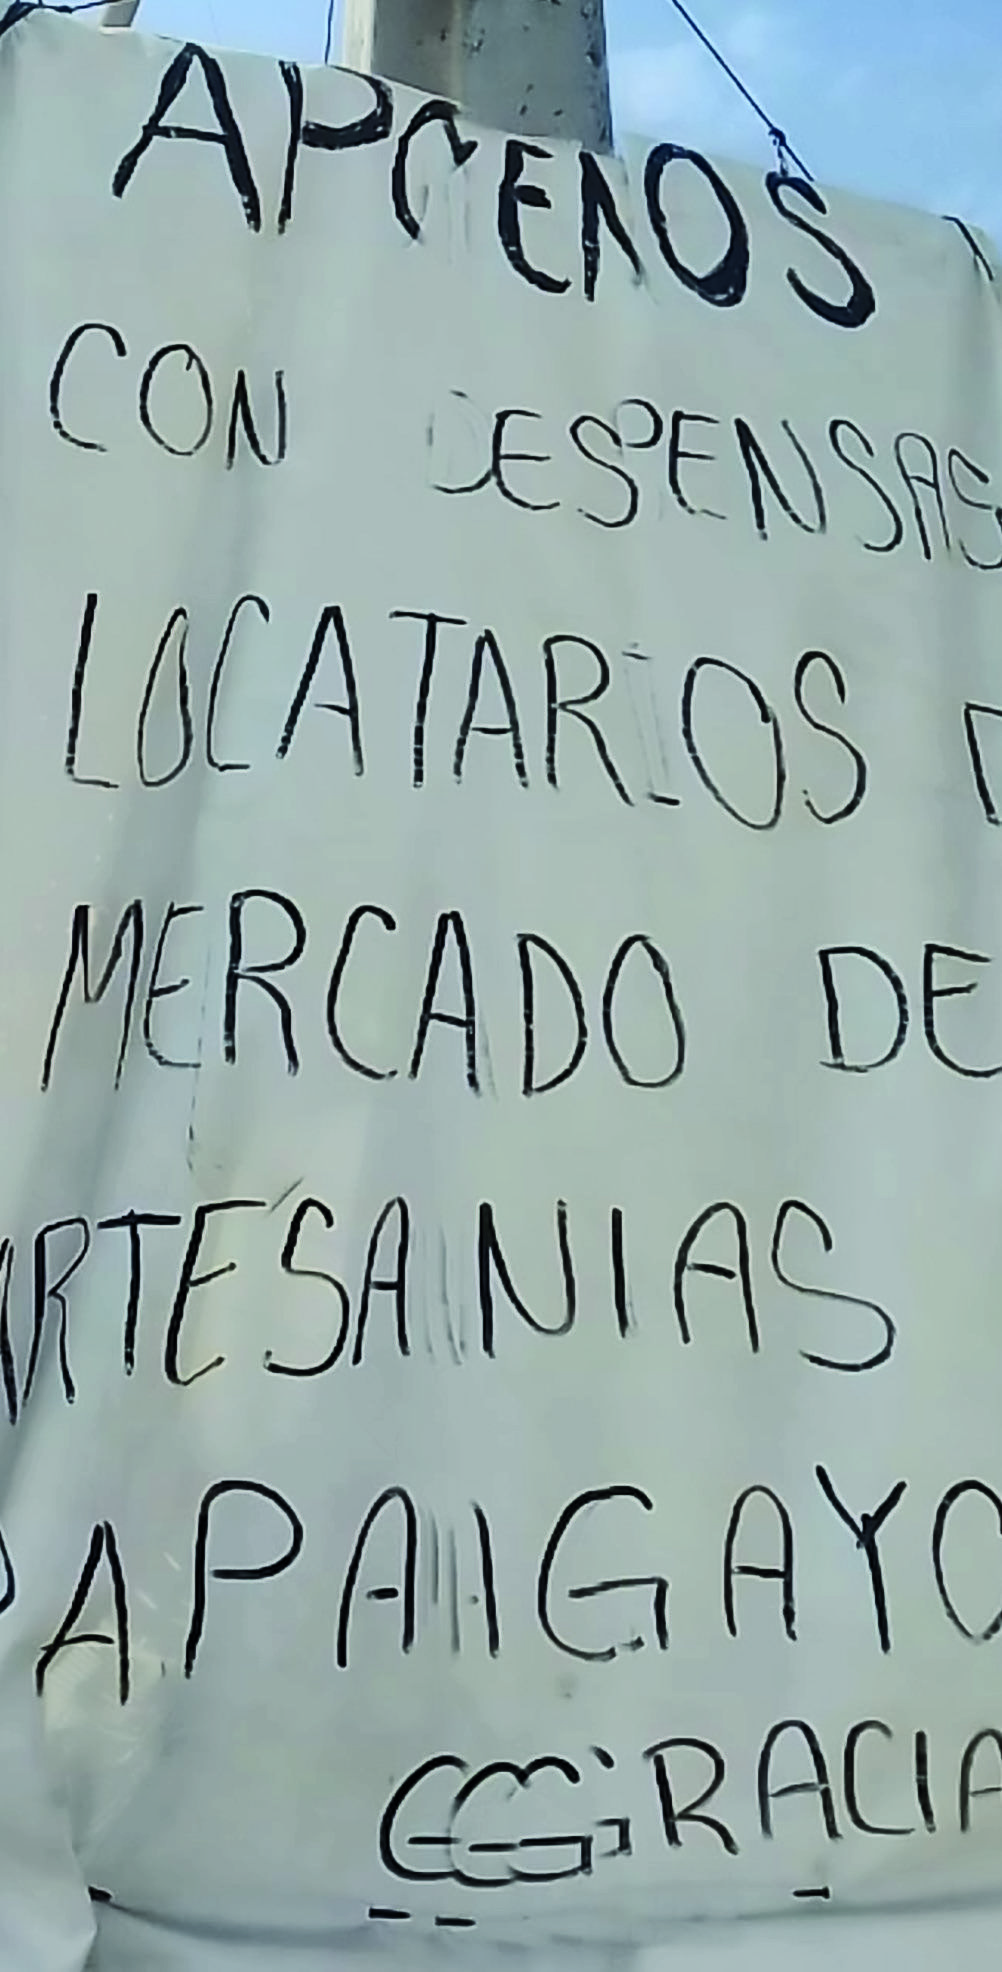 APOENOS
CON DESPENSAS
LOCATARIOS D
MERCADO DE
ARTESANIAS
PAPAIGAYO
GRACIA